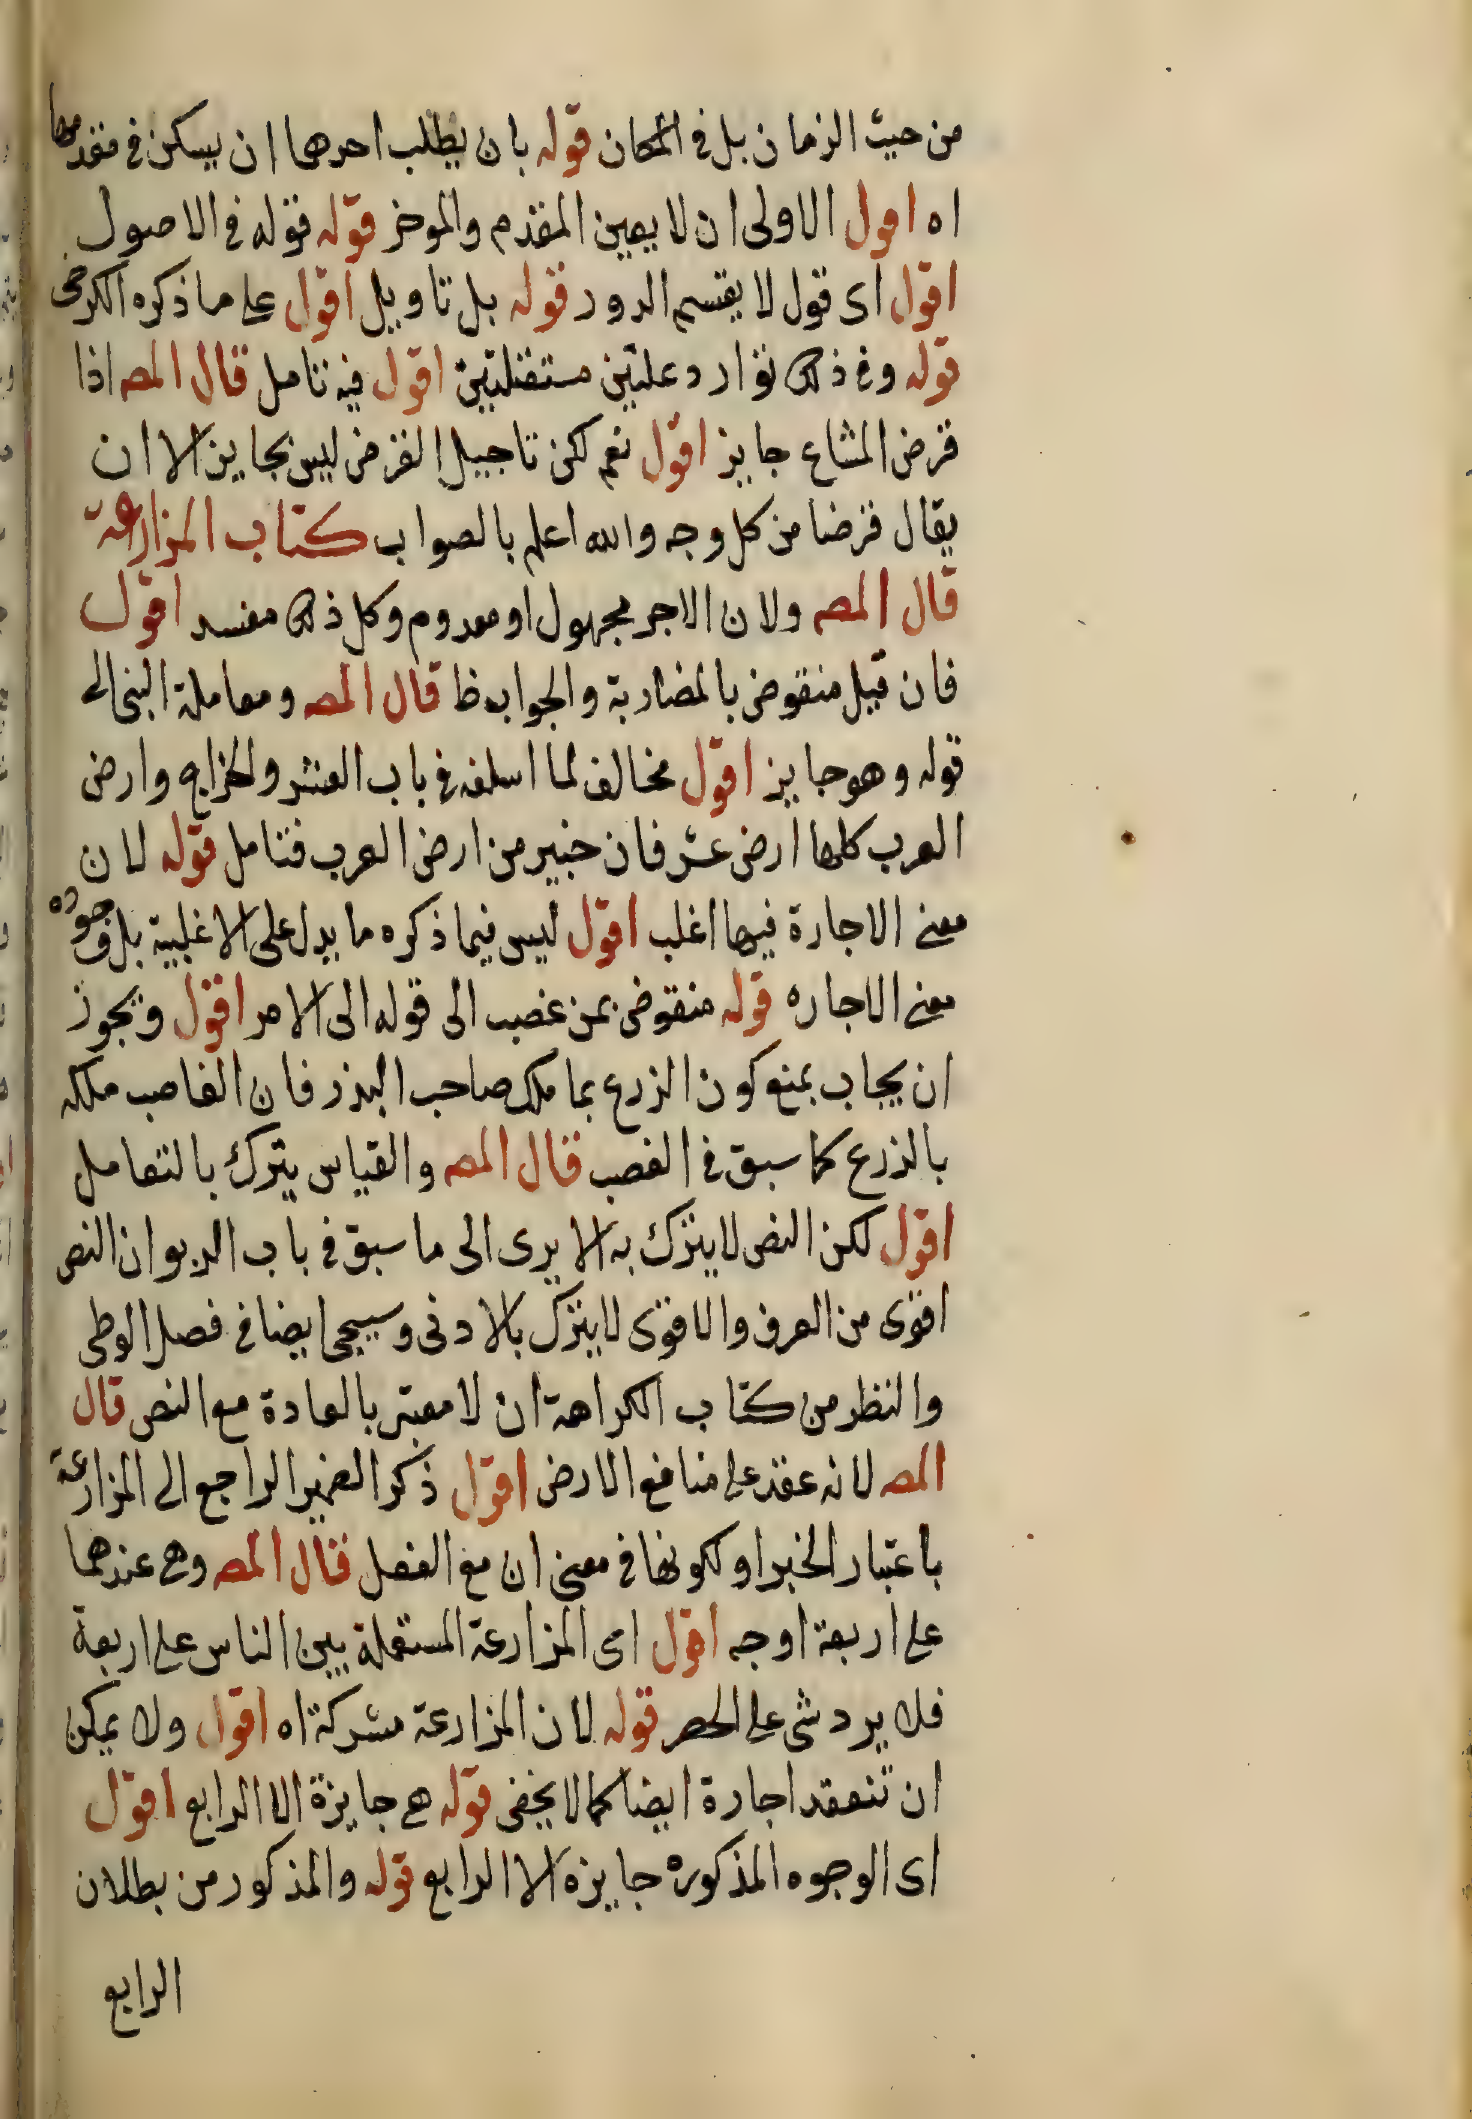 من حيث الزمان بل في المكان قوله بان يطلب احدهما ان يسكن في مقدمها
اه اقول الاولى ان لا يعين المقدم والموخر قوله قوله في الاصول
اقول اى قول لا يقسم الدور قوله بل تاويل اقول على ما ذكره الكرخى
قوله وفي ذلك توارد علتين مستقلتين اقول فيه تامل قال المصـ اذا
قرض المشاع جايز اقول نعم لكن تاجيل القرض ليس بجايز الا ان
يقال قرضا من كل وجه والله اعلم بالصواب كتاب المزارعة
قال المصـ ولان الاجر مجهول او معدوم وكل ذلك مفسد اقول
فان قيل منقوض بالمضاربة والجواب ظ قال المصـ ومعاملة النبى الى
قوله وهو جايز اقول مخالف لما اسلفه في باب العشر والخراج وارض
العرب كلها ارض عشر فان خيبر من ارض العرب فتامل قوله لان
معنى الاجارة فيها اغلب اقول ليس فيما ذكره ما يدل على الاغلبية بل وجوده
معنى الاجاره قوله منقوض بمن غصب الى قوله الى الامر اقول ويجوز
ان يجاب بمنع كون الزرع بما ملك صاحب البذر فان الغاصب ملكه
بالزرع كما سبق في الغصب قال المصـ والقياس يترك بالتعامل
اقول لكن النص لا يترك به الا يرى الى ما سبق في باب الربو ان النص
اقوى من العرف والاقوى لا يترك بالادنى وسيجى ايضا في فصل الوطى
والنظر من كتاب الكراهة ان لا معتبر بالعادة مع النص قال
المصـ لانه عقد على منافع الارض اقول ذكر الضمير الراجع الى المزارعة
باعتبار الخبر او لكونها في معنى ان مع الفعل قال المصـ وهى عندهما
على اربعة اوجه اقول اى المزارعة المستعملة بين الناس على اربعة
فلا يرد شى على الحصر قوله لان المزارعة مشركة اه اقول ولا يمكن
ان تنعقد اجارة ايضا كما لا يخفى قوله هى جايزة الا الرابع اقول
اى الوجوه المذكوره جايزه الا الرابع قوله والمذكور من بطلان
الرابع